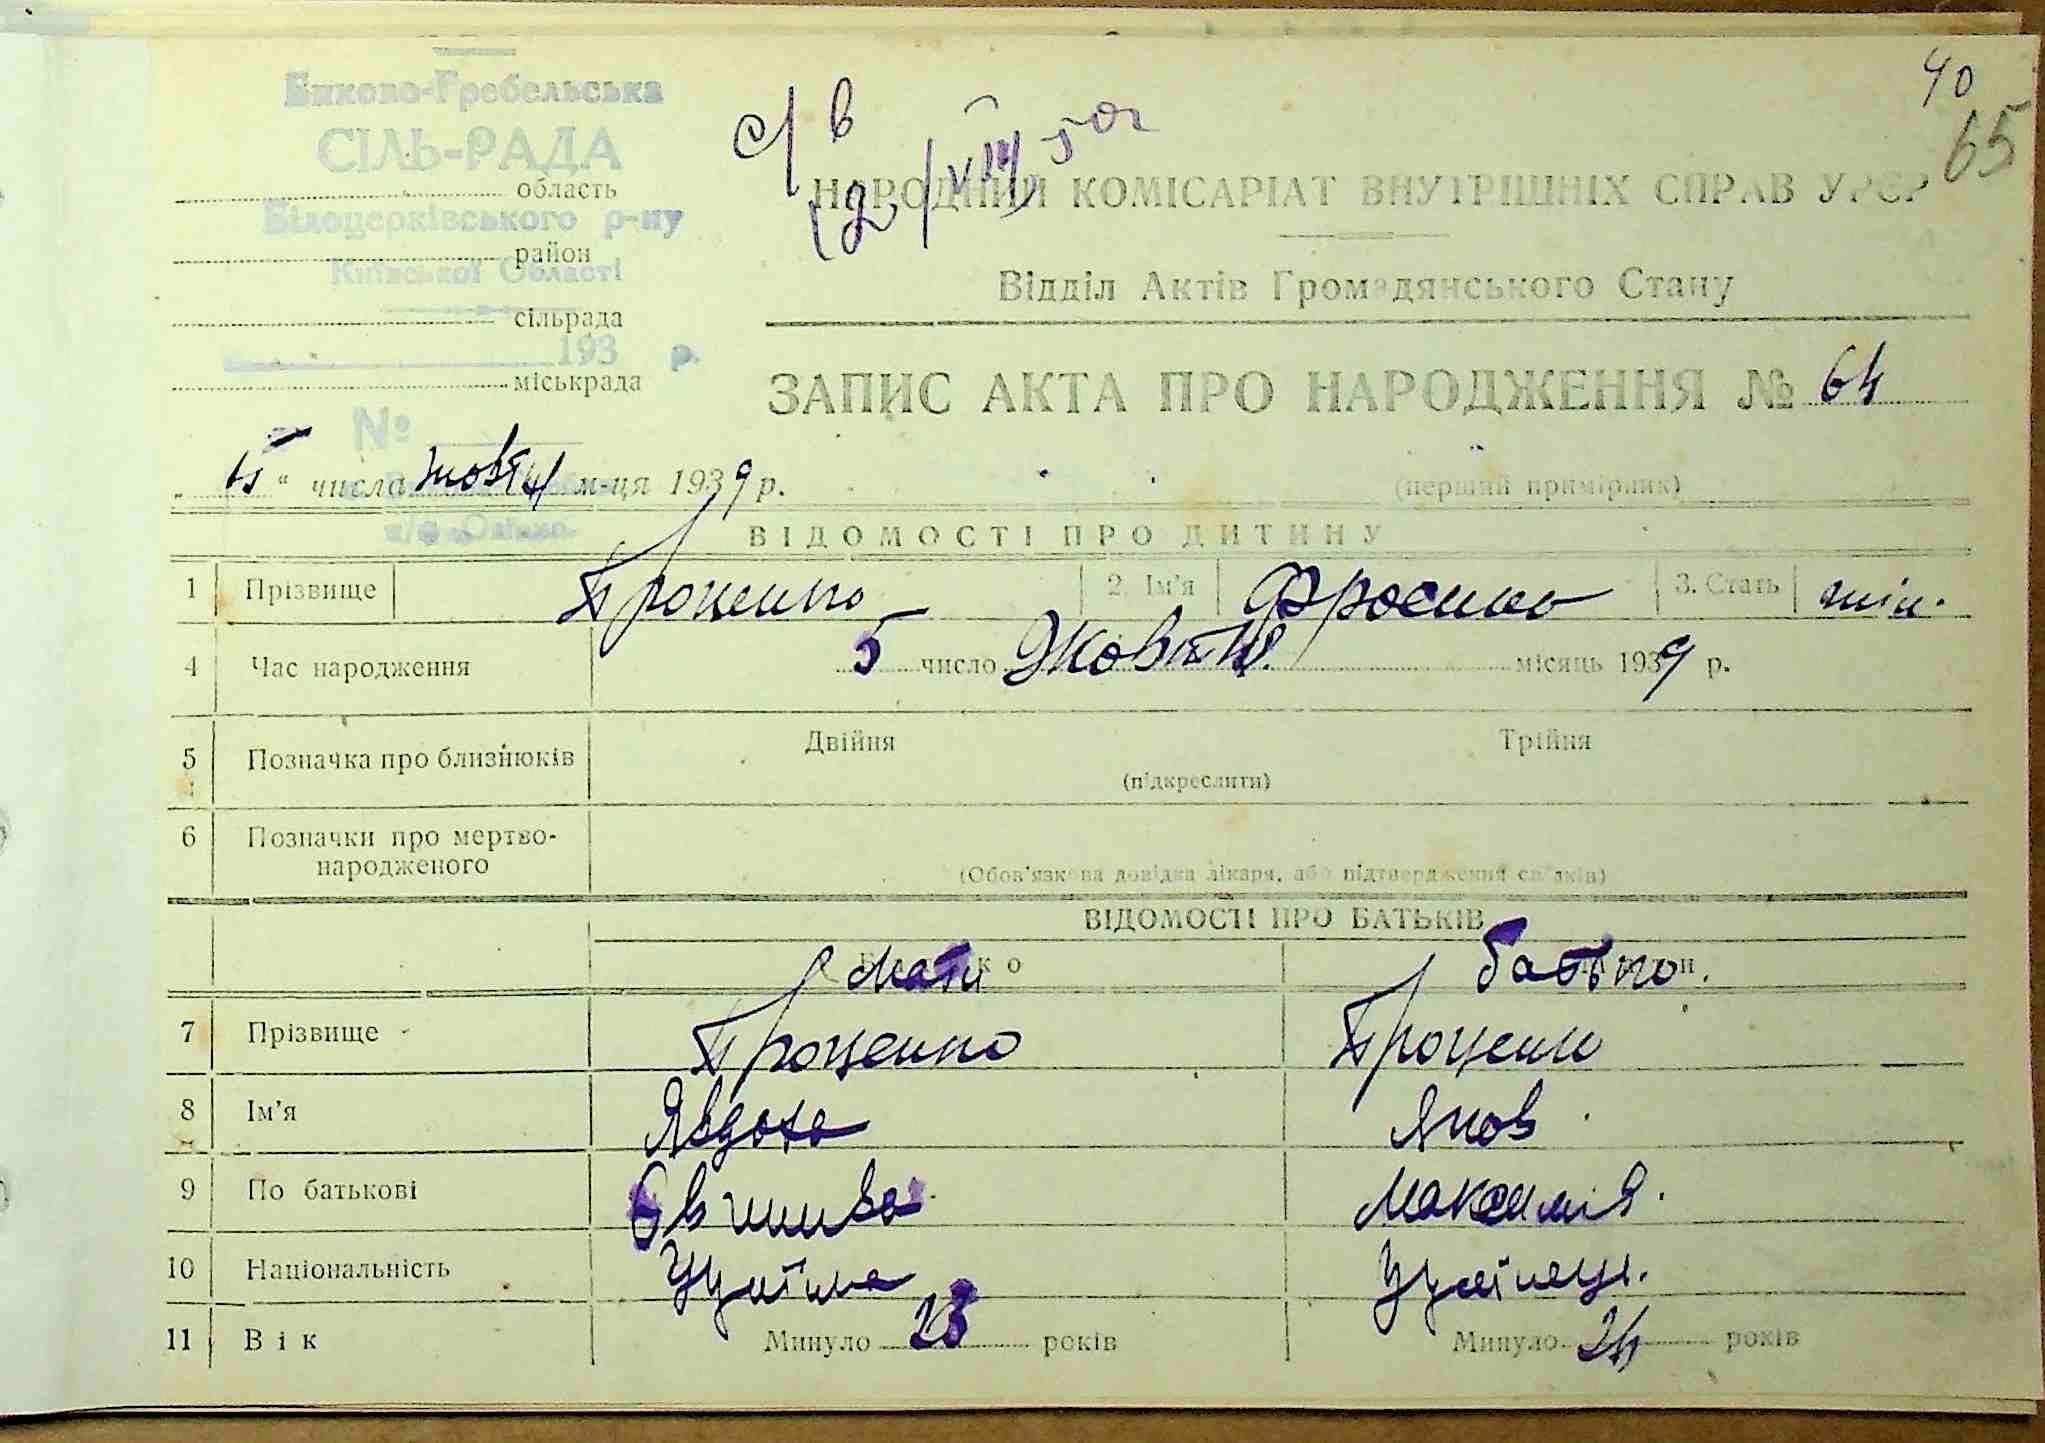 40
65
Биково-Гребельська
СІЛЬ-РАДА
область
Білоцерківського р-ну
район
Київської Області
сільрада
193 р.
міськрада
№
с/в
12/VIII 50г
НАРОДНИЙ КОМІСАРІАТ ВНУТРІШНІХ СПРАВ УРСР
Відділ Актів Громадянського Стану
ЗАПИС АКТА ПРО НАРОДЖЕННЯ № 64
" числа жовтн м-ця 1939 р.
(перший примірник)
ВІДОМОСТІ ПРО ДИТИНУ
1 Прізвище Проценко 2. Ім'я Фросина 3. Стать жін.
4 Час народження 5 число Жовтн. місяць 1939 р.
5 Позначка про близнюків Двійня Трійня
(підкреслити)
6 Позначки про мертво-
народженого
(Обов'язкова довідка лікаря, або підтвердження свідків)
ВІДОМОСТІ ПРО БАТЬКІВ
Мати Батько.
7 Прізвище Проценко Проценко
8 Ім'я Явдоха Яков
9 По батькові Максимів.
10 Національність Українка Українець.
11 Вік Минуло 23 років Минуло 24 років